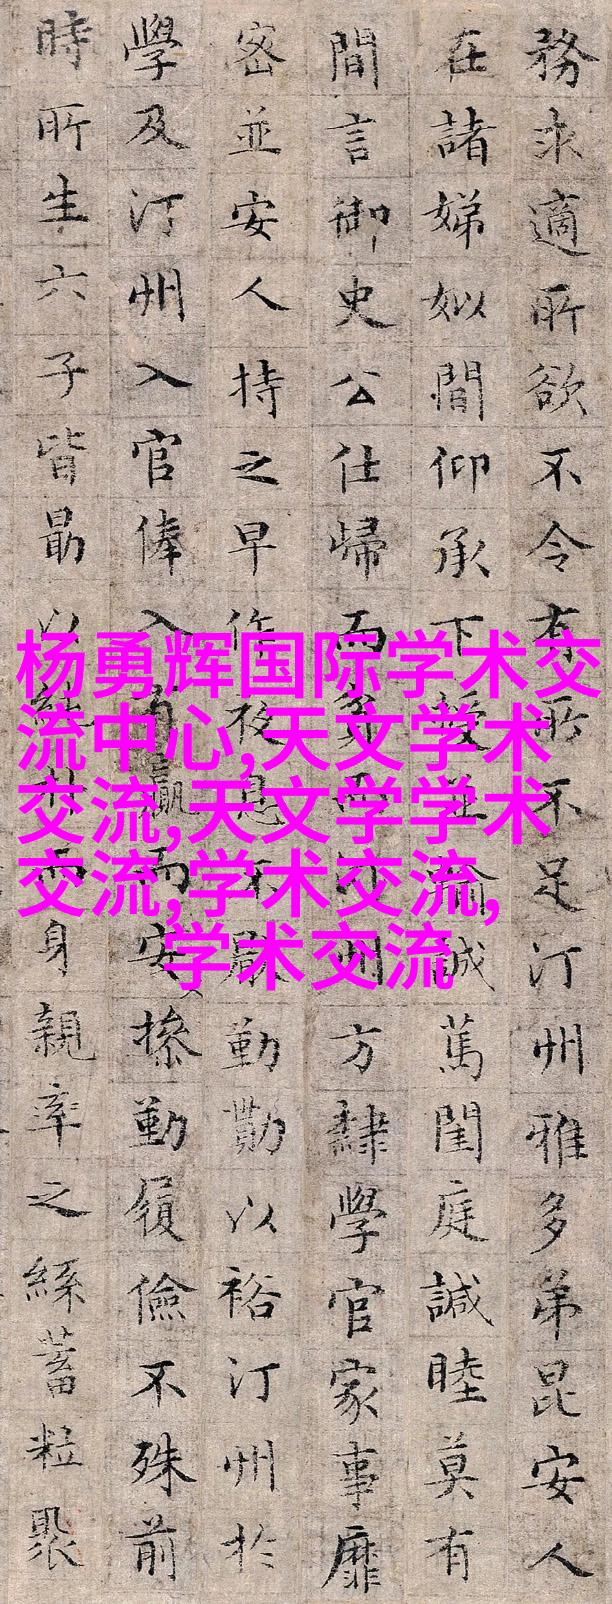 務求適所欲不令有所不足汀州雅多弟昆安人
在諸娣姒間仰承下並誠篤閨庭諴睦莫有
間言御史公仕歸而州方隸學官家事靡
密並安人持之早作夜息不厭勤勩以裕汀州於
學及汀州入官俸入羸而安操勤履儉不殊前
時所生六子皆勗以而身親率之絲蓄粒聚
杨勇辉国际学术交
流中心,天文学术
交流,天文学学术
交流,学术交流,
学术交流